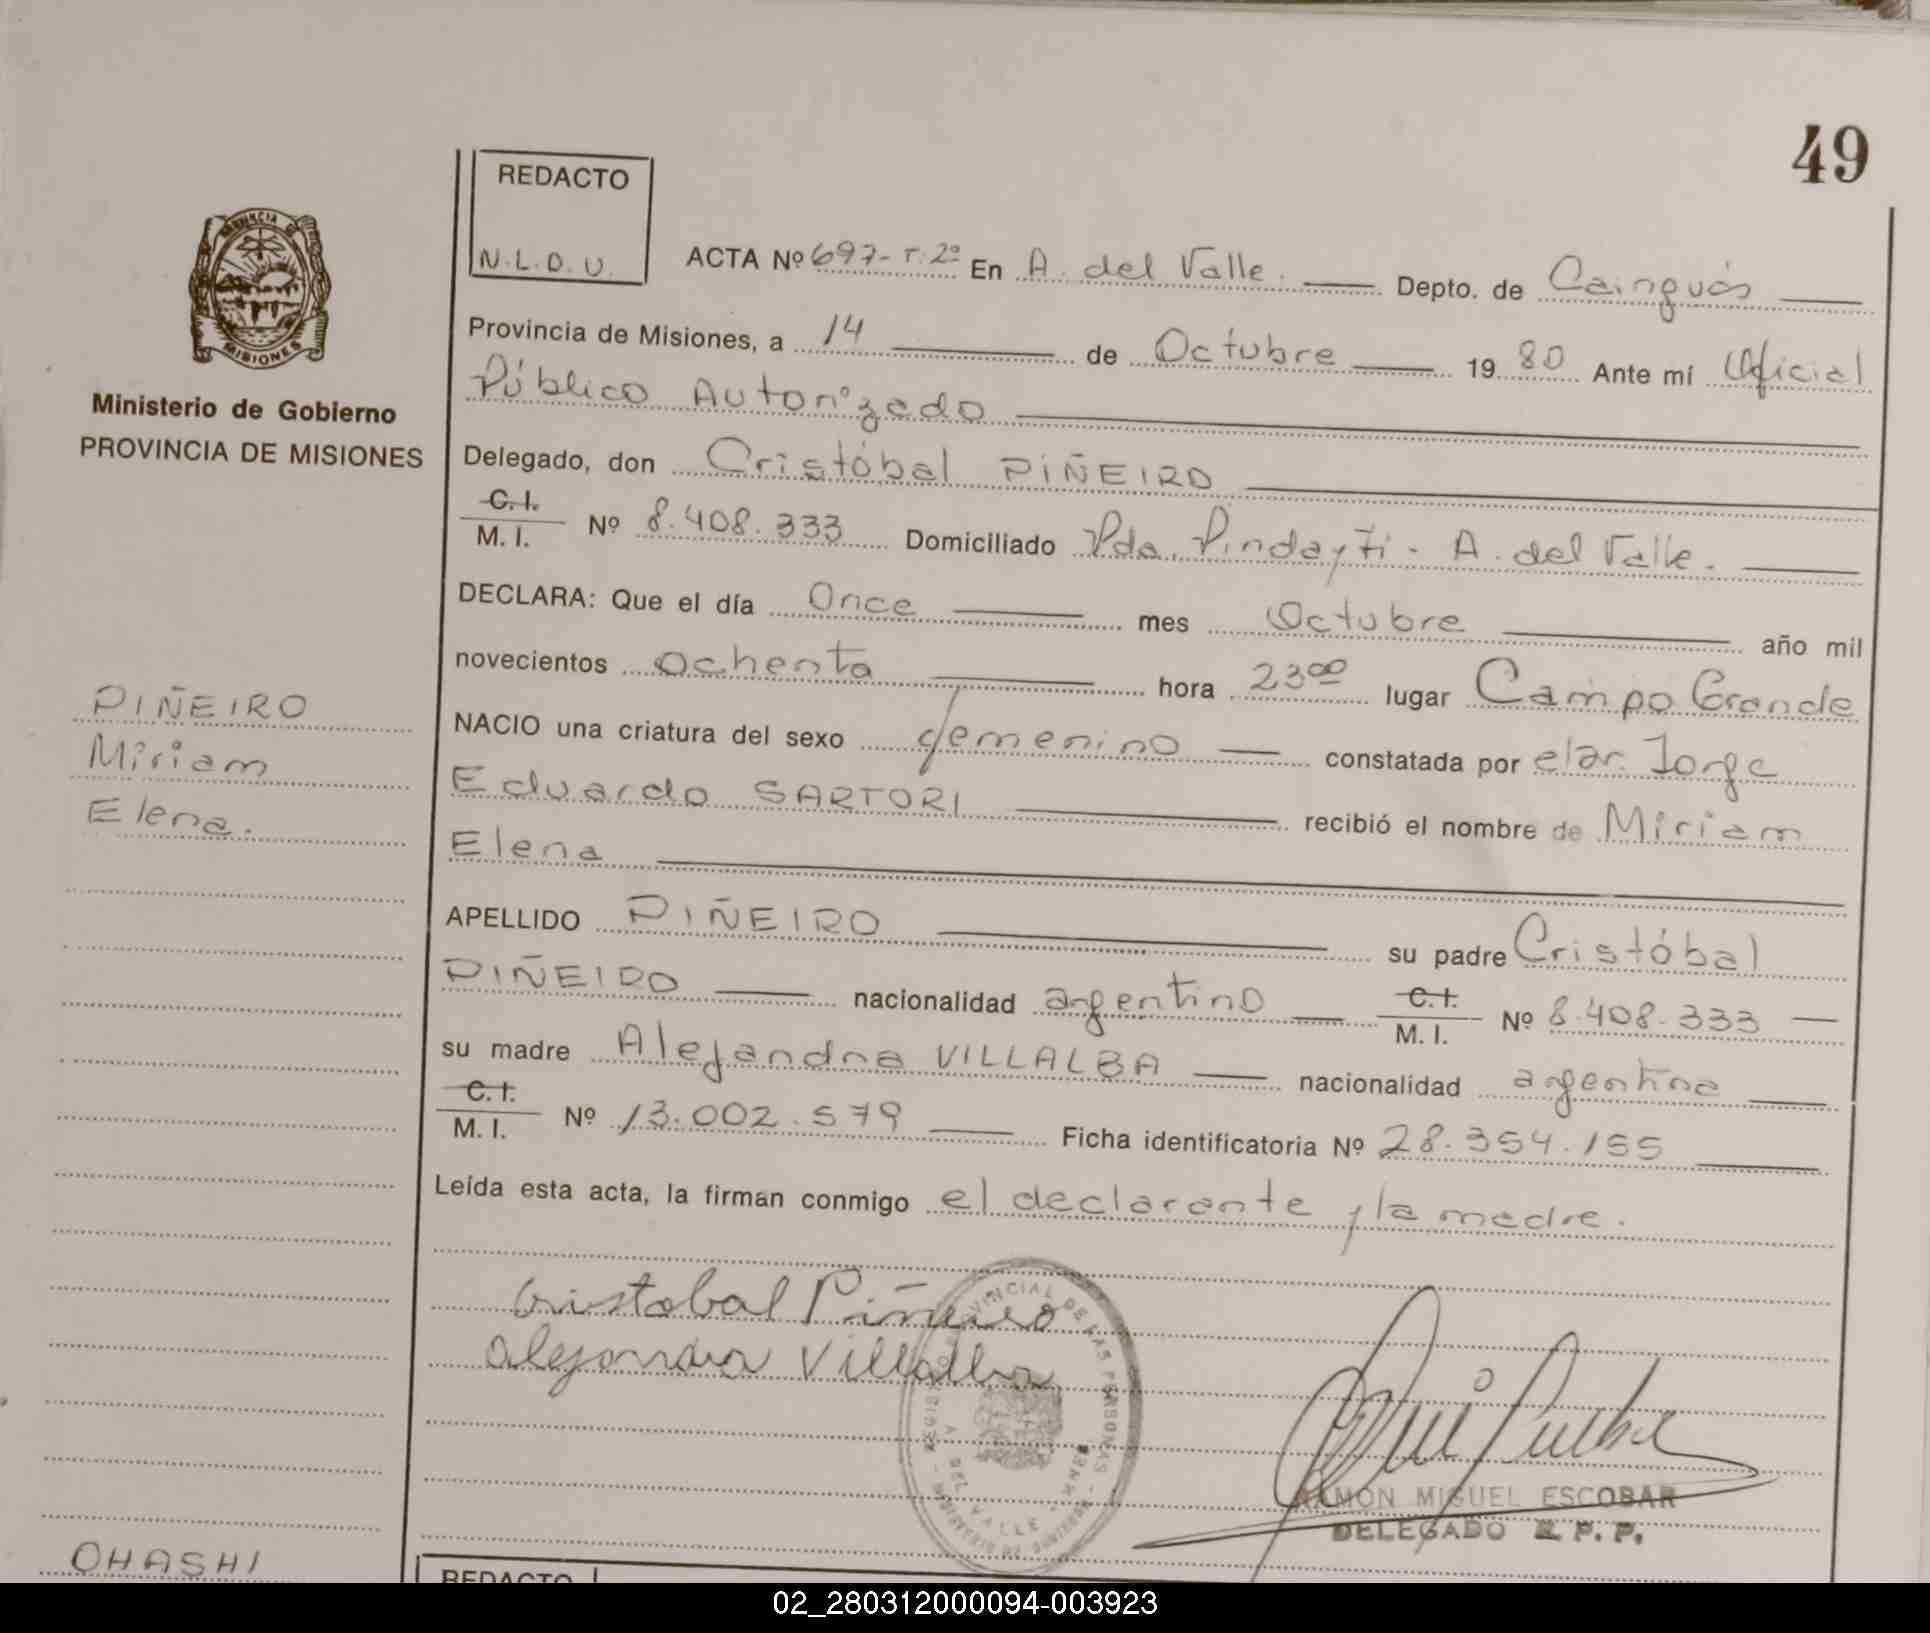 49
REDACTO
N.L.D.U.
ACTA Nº 697- T. 2º En A. del Valle. Depto. de Cainguás
Provincia de Misiones, a 14 de Octubre 1980 Ante mí Oficial
Público Autorizado
Delegado, don Cristóbal PIÑEIRO
C. I.
M. I. Nº 8.408.333 Domiciliado Pda. Pindayti - A. del Valle.
DECLARA: Que el día Once mes Octubre año mil
novecientos ochenta hora 23⁰⁰ lugar Campo Grande
NACIO una criatura del sexo femenino constatada por el dr. Jorge
Eduardo SARTORI recibió el nombre de Miriam
Elena
APELLIDO PIÑEIRO su padre Cristóbal
PIÑEIRO nacionalidad argentino C. I.
M. I. Nº 8.408.333
su madre Alejandra VILLALBA nacionalidad argentina
C. I.
M. I. Nº 13.002.579 Ficha identificatoria Nº 28.354.155
Leída esta acta, la firman conmigo el declarante y la madre.
Cristobal Piñeiro
Alejandra Villalba
PROVINCIAL DE LAS PERSONAS
A DEL VALLE
RAMÓN MIGUEL ESCOBAR
DELEGADO R. P. P.
PROVINCIA DE
MISIONES
Ministerio de Gobierno
PROVINCIA DE MISIONES
PIÑEIRO
Miriam
Elena.
OHASHI
REDACTO
02_280312000094-003923